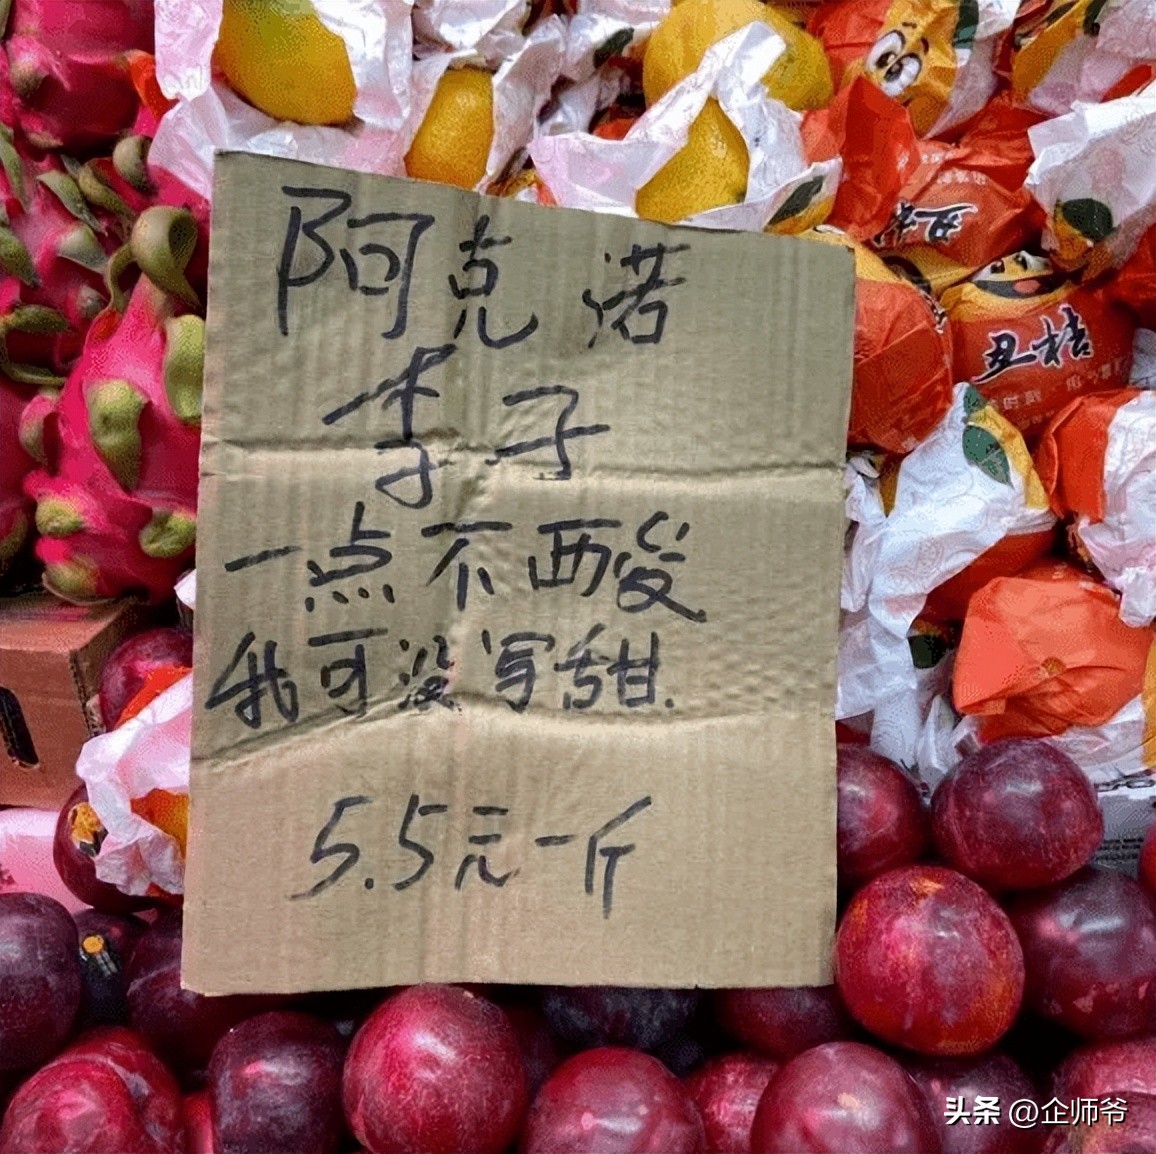 阿克诺
李子
一点不酸
我可没写甜.
5.5元一斤
丑桔
丑桔
头条 @企师爷